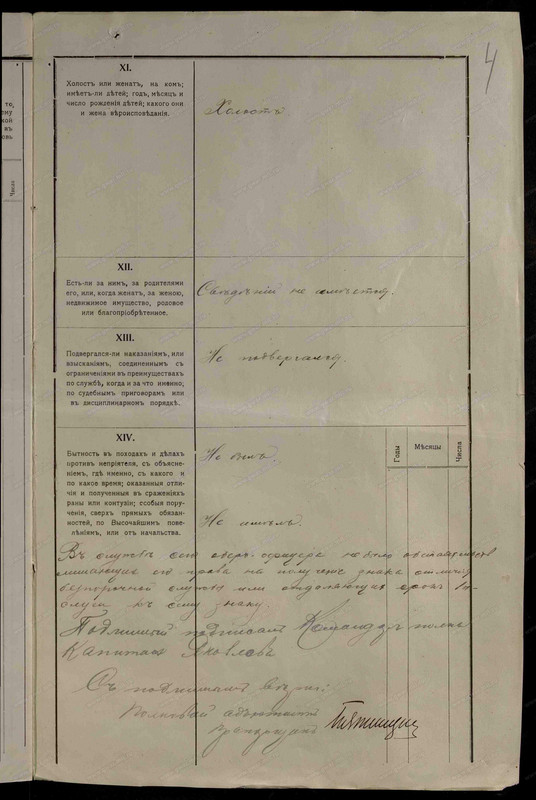 4
XI.
Холостъ или женатъ, на комъ;
имѣетъ-ли дѣтей; годъ, мѣсяцъ и
число рожденія дѣтей; какого они
и жена вѣроисповѣданія.
Холостъ
XII.
Есть-ли за нимъ, за родителями
его, или, когда женатъ, за женою,
недвижимое имущество, родовое
или благопріобрѣтенное.
Свѣдѣній не имѣется.
XIII.
Подвергался-ли наказаніямъ, или
взысканіямъ, соединеннымъ съ
ограниченіями въ преимуществахъ
по службѣ, когда и за что именно,
по судебнымъ приговорамъ или
въ дисциплинарномъ порядкѣ.
Не подвергался.
XIV.
Бытность въ походахъ и дѣлахъ
противъ непріятеля, съ объясне-
ніемъ, гдѣ именно, съ какого и
по какое время; оказанныя отли-
чія и полученныя въ сраженіяхъ
раны или контузіи; особыя пору-
ченія, сверхъ прямыхъ обязан-
ностей, по Высочайшимъ пове-
лѣніямъ, или отъ начальства.
Не былъ.
Не имѣлъ.
Годы
Мѣсяцы
Числа
Въ службѣ сего оберъ-офицера не было обстоятельствъ
лишающихъ его права на полученіе знака отличія
безпорочной службы или отдаляющихъ срокъ вы-
слуги къ сему знаку.
Подлинный подписалъ Командаръ полка
Капитанъ Яковлевъ
Съ подлиннымъ вѣрно:
Полковой адъютантъ
то,
ему
кой
въ
овь
Числа